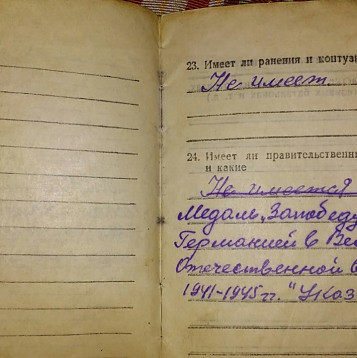 23. Имеет ли ранения и контузи
Не имеет.
24. Имеет ли правительственн
и какие
Не имеется
Медаль „За победу
Германией в Ве
Отечественной в
1941-1945 гг." Указ